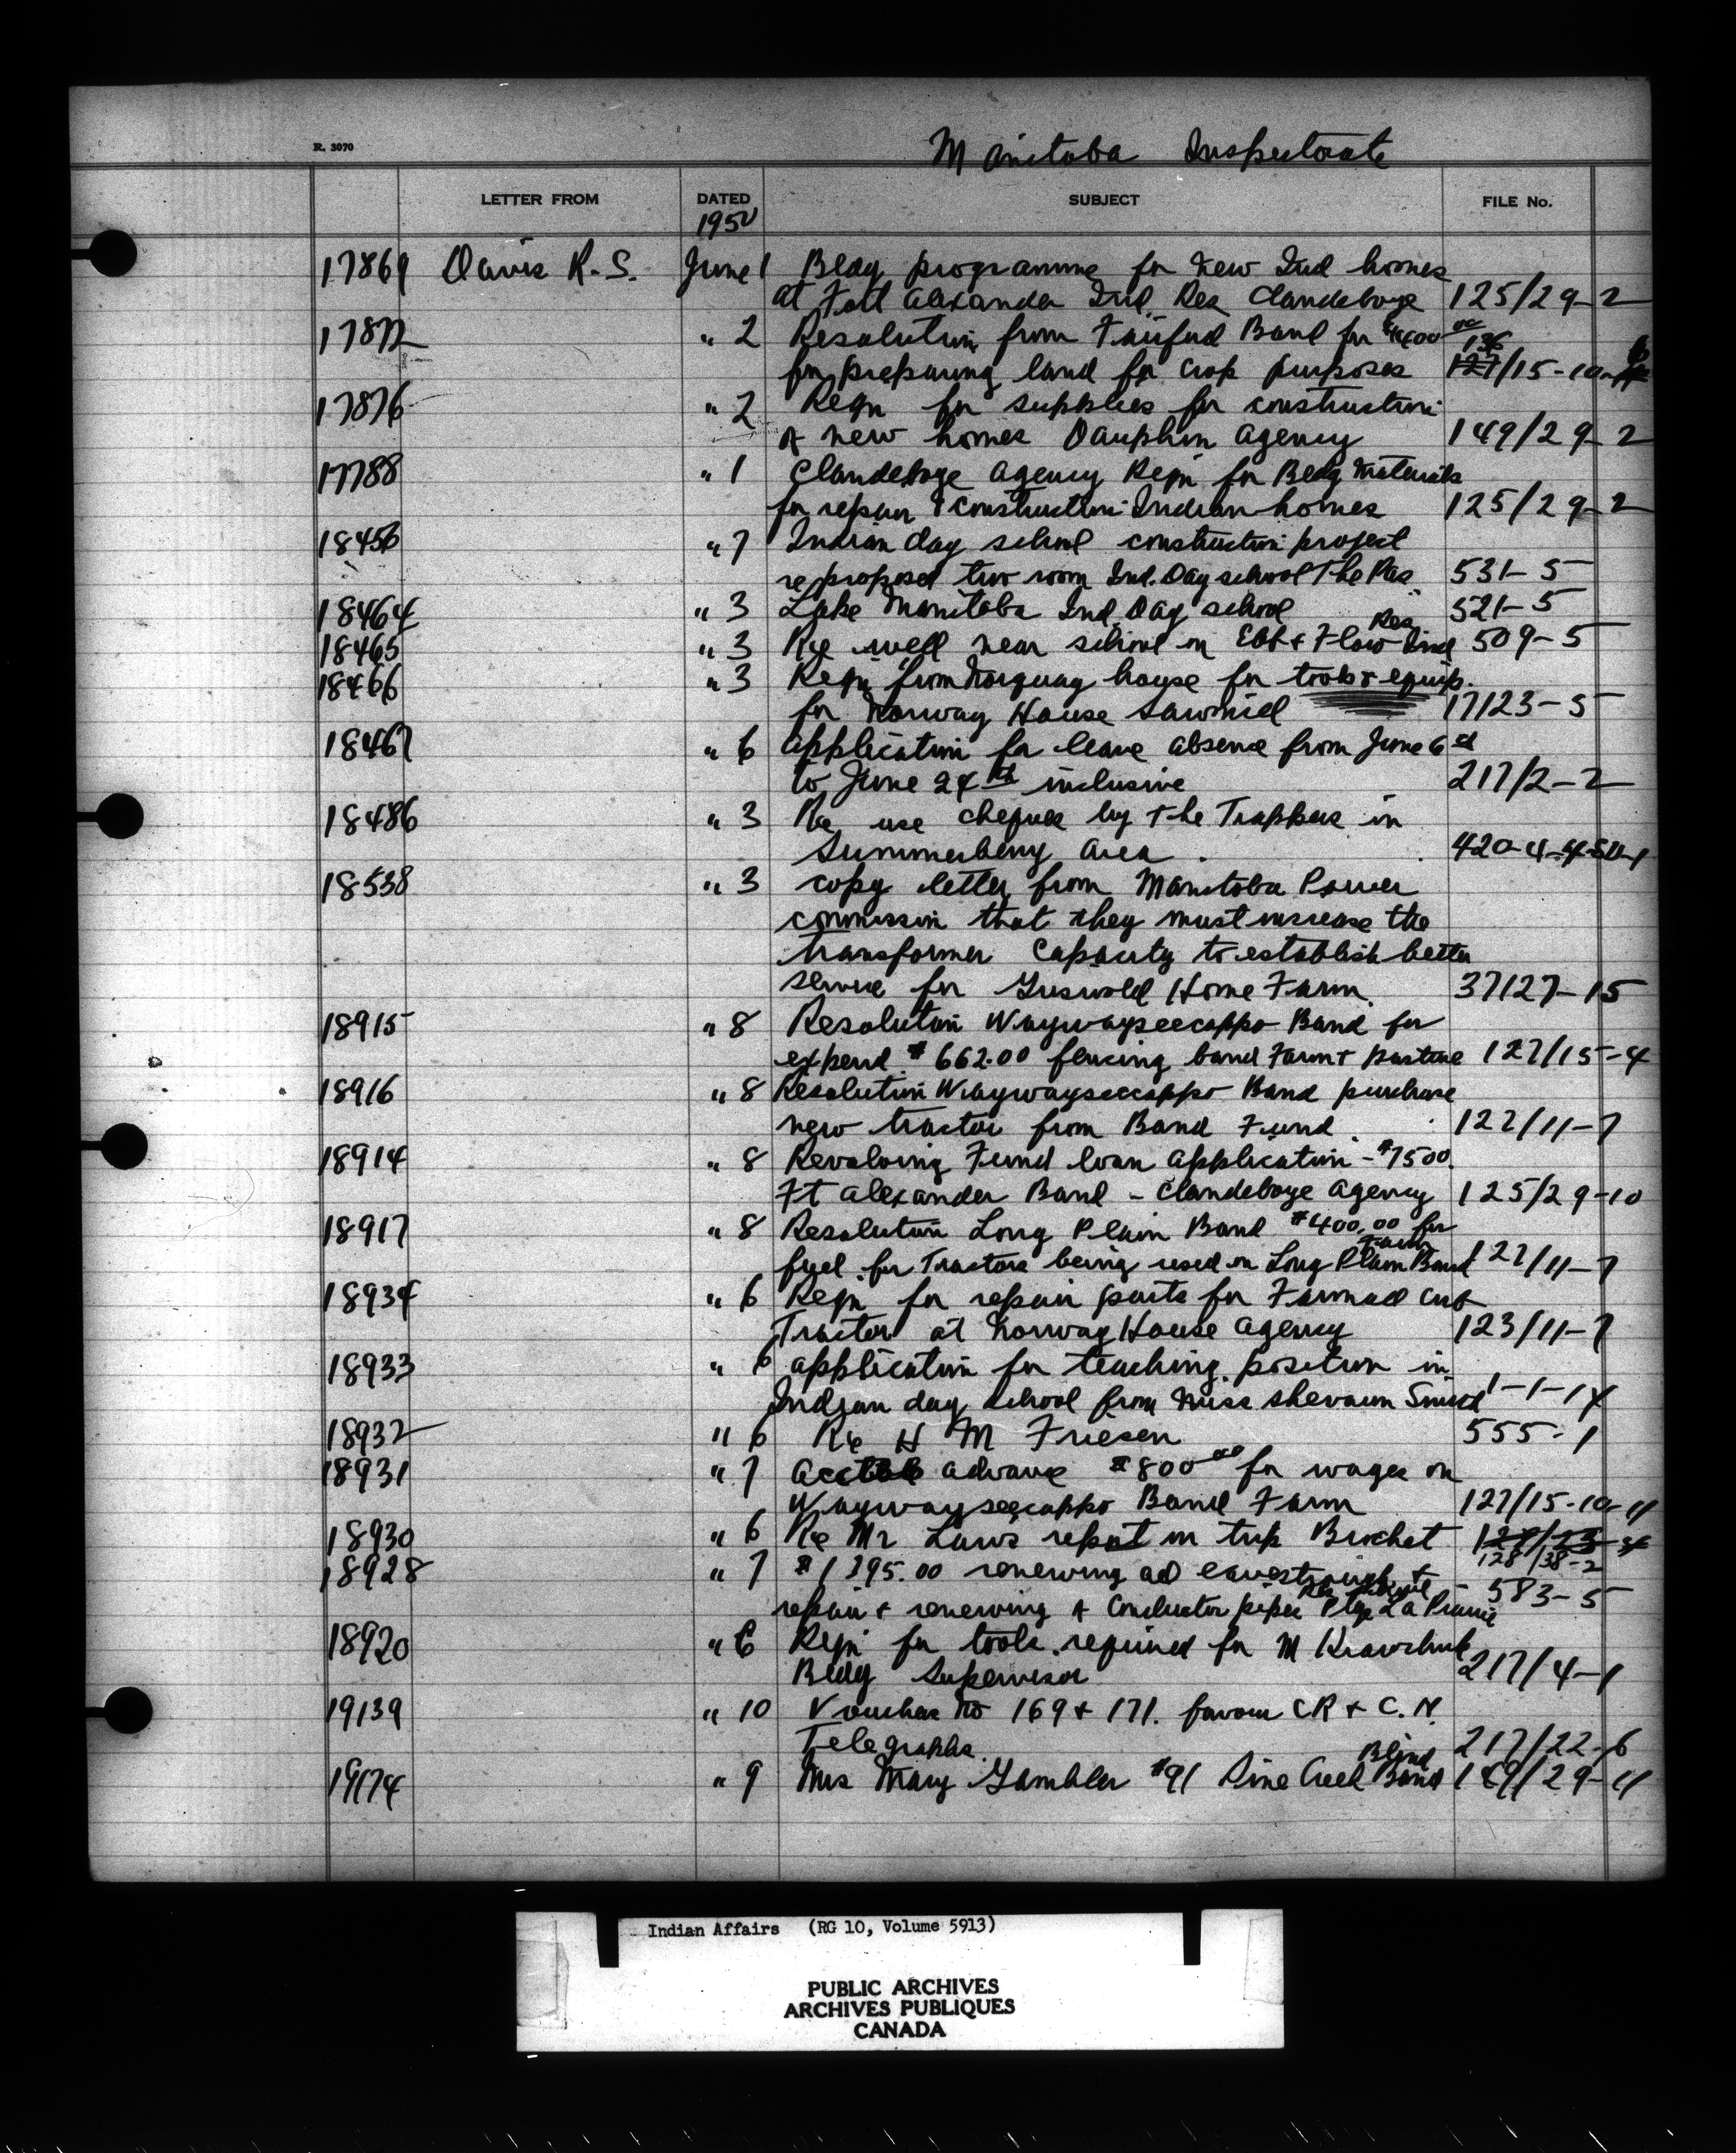 R. 3070
Manitoba Inspectorate
LETTER FROM DATED SUBJECT FILE No.
1950
17869 Davis R. S. June 1 Bldg programme for new Ind homes
at Fort Alexander Ind. Res Clandeboye 125/29-2
17872 " 2 Resolution from Fairford Band for $4400 00
136
for preparing land for crop purposes 127/15-10-
17876 " 2 Reqn for supplies for construction
of new homes Dauphin Agency 149/29-2
17788 " 1 Clandeboye Agency Reqn for Bldg materials
for repair & construction Indian homes 125/29-2
18456 " 7 Indian day school construction project
re proposed two room Ind. Day school The Pas 531-5
18464 " 3 Lake Manitoba Ind. Day school 521-5
18465 " 3 Re well near school on Ebb & Flow Ind Res 509-5
18466 " 3 Reqn from Norway house for tools & equip.
for Norway House Sawmill 17123-5
18467 " 6 Application for leave absence from June 6
to June 24th inclusive 217/2-2
18486 " 3 Re use cheques by the Trappers in
Summerberry Area. 420-4-4-
18538 " 3 copy letter from Manitoba Power
commission that they must increase the
transformer capacity to establish better
service for Griswold Home Farm. 37127-15
18915 " 8 Resolution Waywayseecappo Band for
expend. $662.00 fencing band Farm & pasture 127/15-4
18916 " 8 Resolution Waywayseecappo Band purchase
new tractor from Band Fund. 127/11-7
18914 " 8 Revolving Fund loan application - $7500.
Ft Alexander Band - Clandeboye Agency 125/29-10
18917 " 8 Resolution Long Plain Band $400.00 for
fuel for Tractors being used on Long Plain Band Farm 127/11-7
18934 " 6 Reqn for repair parts for Farmall Cub
Tractor at Norway House Agency 123/11-7
18933 " 6 application for teaching position in
Indian day school from Miss Shevaun 1-1-14
18932 " 6 Re H M Friesen 555-1
18931 " 7 advance $800 00 for wages on
Waywayseecappo Band Farm 127/15-10-11
18930 " 6 Re Mr Laws report on trip Brochet
128/38-2
18928 " 7 $1395.00 renewing ad eavestrough &
repair & renewing of Conductor pipes Ptge La Prairie 583-5
18920 " 6 Reqn for tools required for M Krawchuk
Bldg Supervisor 217/4-1
19139 " 10 Voucher No 169 & 171. favour CP & C. N.
Telegraphs. 217/22-6
19174 " 9 Mrs Mary Gambler #91 Pine Creek Band Blind 149/29-11
Indian Affairs (RG 10, Volume 5913)
PUBLIC ARCHIVES
ARCHIVES PUBLIQUES
CANADA